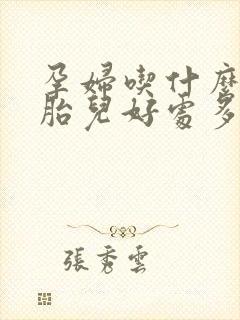 孕婦喫什麼
胎兒好處多
張秀雲